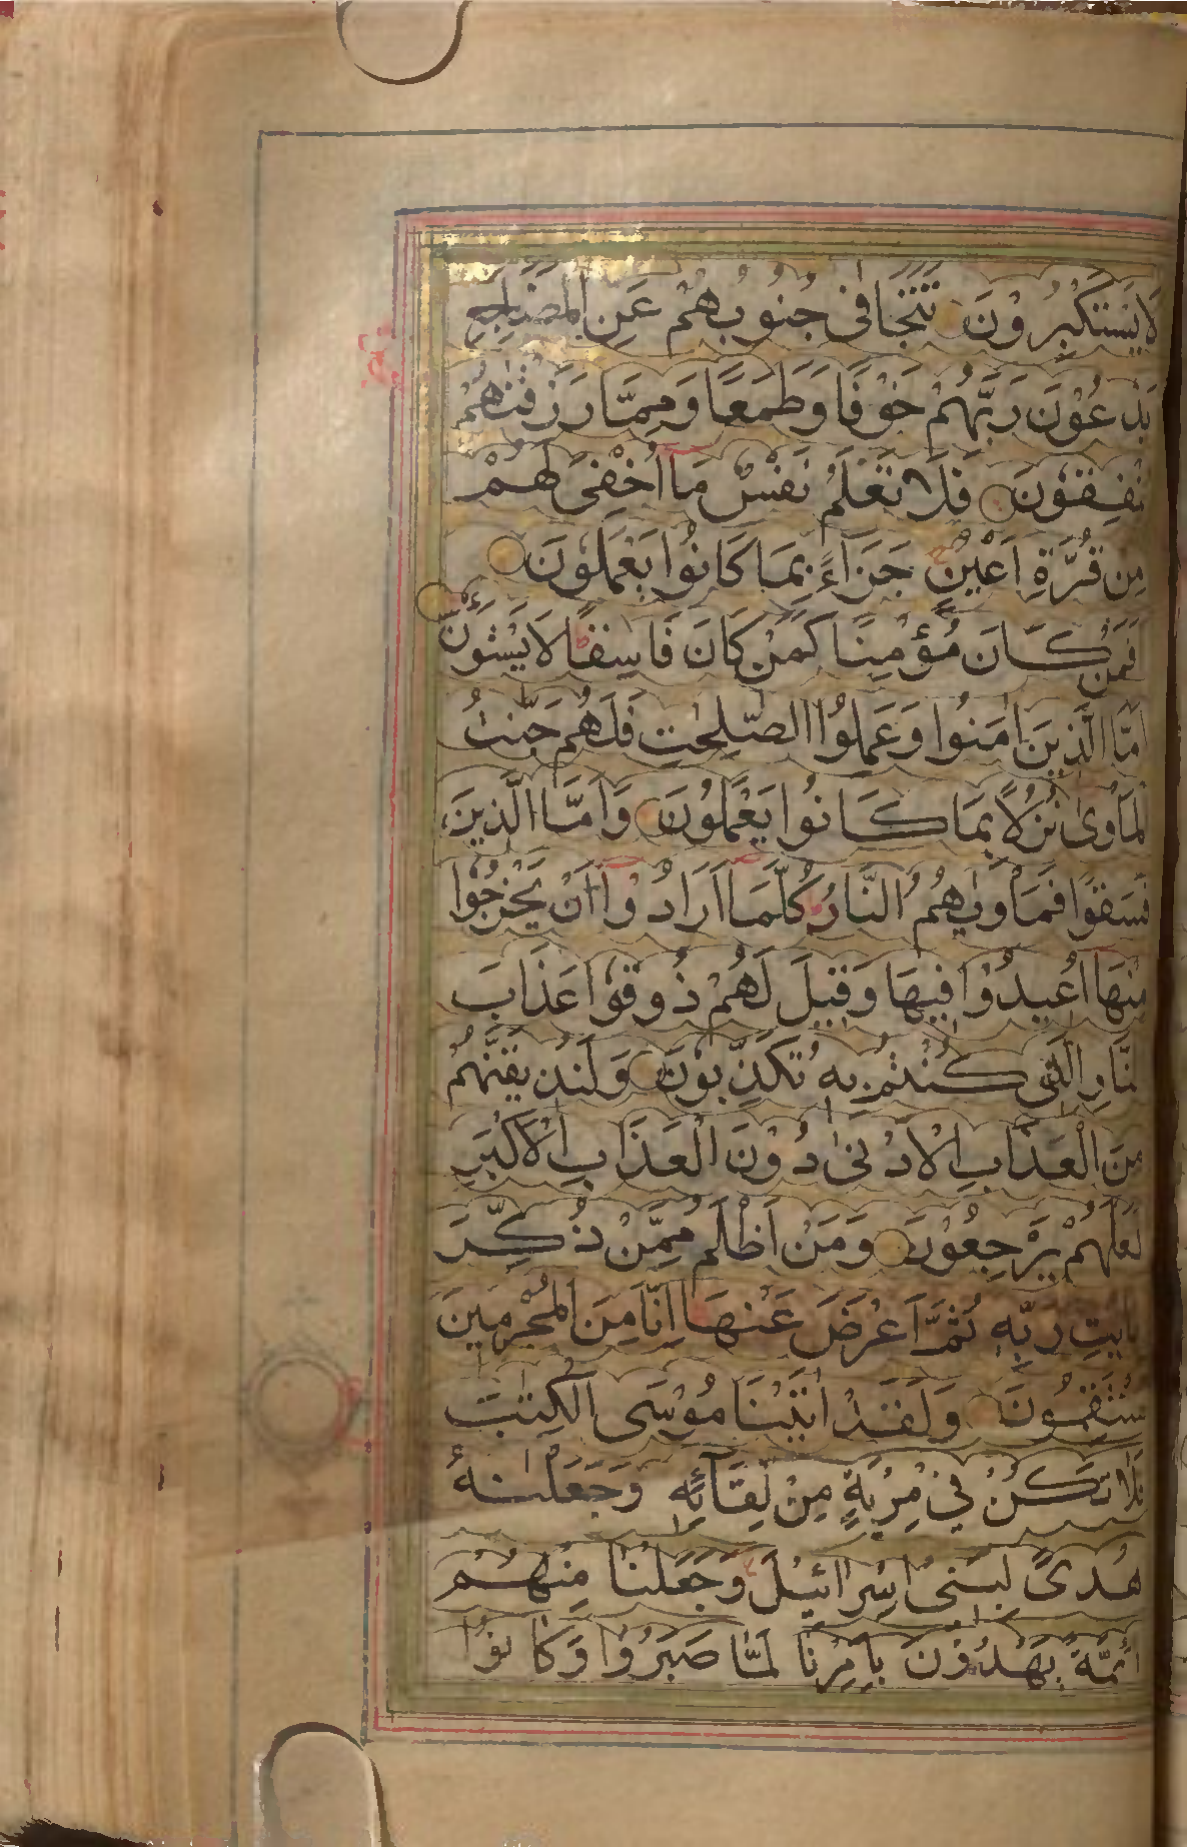 لَا يَسْتَكْبِرُوْنَ تَتَجَافٰى جُنُوبُهُمْ عَنِ الْمَضَاجِعِ
يَدْعُوْنَ رَبَّهُمْ خَوْفًا وَطَمَعًا وَمِمَّا رَزَقْنٰهُمْ
يُنْفِقُوْنَ فَلَا تَعْلَمُ نَفْسٌ مَا اُخْفِىَ لَهُمْ
مِنْ قُرَّةِ اَعْيُنٍ جَزَاءً بِمَا كَانُوا يَعْمَلُوْنَ
اَفَمَنْ كَانَ مُؤْمِنًا كَمَنْ كَانَ فَاسِقًا لَا يَسْتَوٗنَ
اَمَّا الَّذِينَ اٰمَنُوا وَعَمِلُوا الصّٰلِحٰتِ فَلَهُمْ جَنّٰتُ
الْمَاْوٰى نُزُلًا بِمَا كَانُوا يَعْمَلُوْنَ وَاَمَّا الَّذِينَ
فَسَقُوْا فَمَاْوٰيهُمُ النَّارُ كُلَّمَا اَرَادُوْا اَنْ يَخْرُجُوْا
مِنْهَا اُعِيدُوْا فِيهَا وَقِيلَ لَهُمْ ذُوقُوْا عَذَابَ
النَّارِ الَّتِى كُنْتُمْ بِهٖ تُكَذِّبُوْنَ وَلَنُذِيقَنَّهُمْ
مِنَ الْعَذَابِ الْاَدْنٰى دُوْنَ الْعَذَابِ الْاَكْبَرِ
لَعَلَّهُمْ يَرْجِعُوْنَ وَمَنْ اَظْلَمُ مِمَّنْ ذُكِّرَ
بِاٰيٰتِ رَبِّهٖ ثُمَّ اَعْرَضَ عَنْهَا اِنَّا مِنَ الْمُجْرِمِينَ
مُنْتَقِمُوْنَ وَلَقَدْ اٰتَيْنَا مُوْسَى الْكِتٰبَ
فَلَا تَكُنْ فِى مِرْيَةٍ مِنْ لِقَآئِهٖ وَجَعَلْنٰهُ
هُدًى لِبَنِى اِسْرَائِيْلَ وَجَعَلْنَا مِنْهُمْ
اَئِمَّةً يَهْدُوْنَ بِاَمْرِنَا لَمَّا صَبَرُوْا وَكَانُوْا